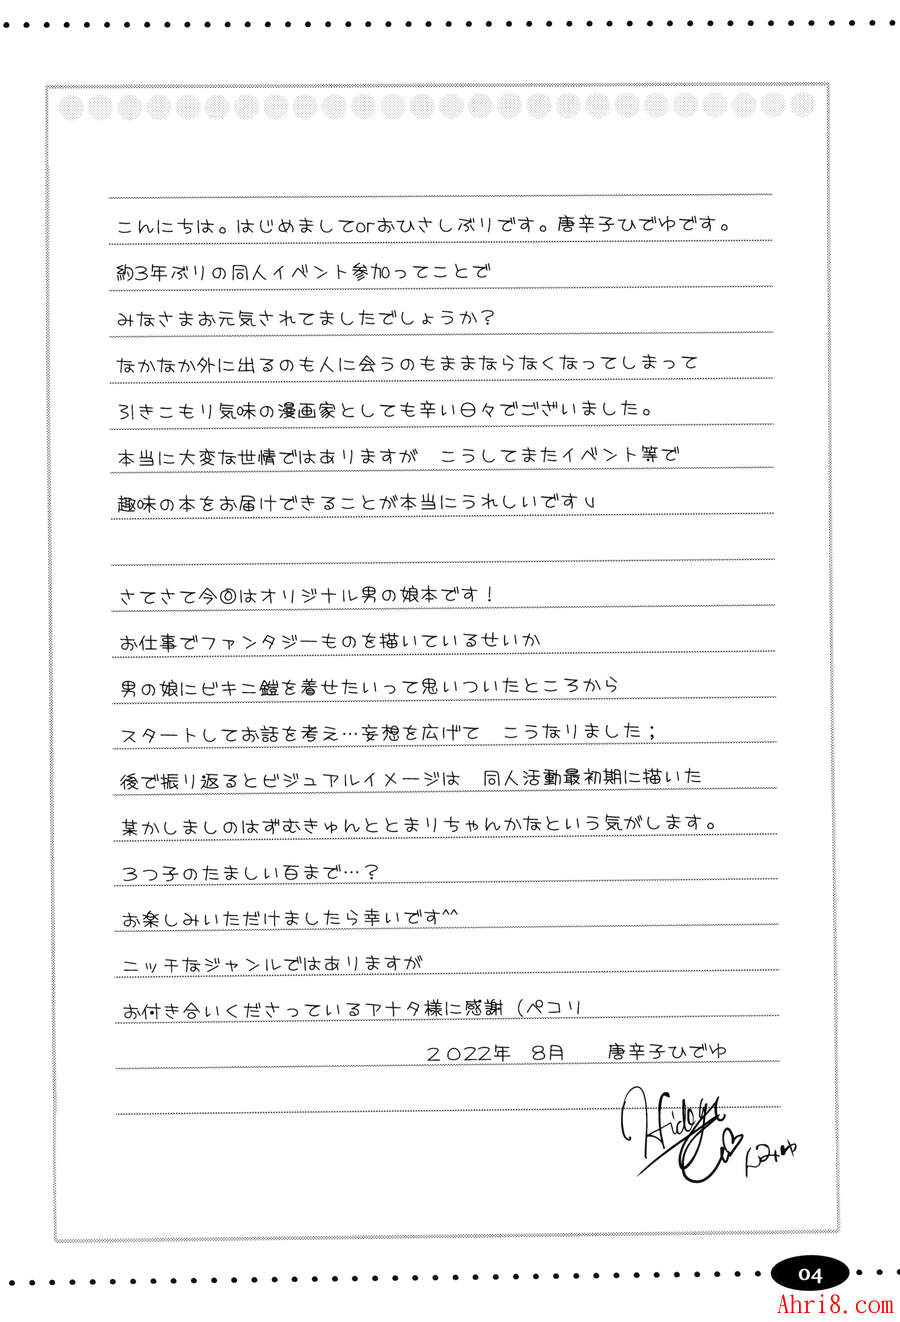 こんにちは。はじめましてorおひさしぶりです。唐辛子ひでゆです。
約3年ぶりの同人イベント参加ってことで
みなさまお元気されてましたでしょうか?
なかなか外に出るのも人に会うのもままならなくなってしまって
引きこもり気味の漫画家としても辛い日々でございました。
本当に大変な世情ではありますが　こうしてまたイベント等で
趣味の本をお届けできることが本当にうれしいですν
さてさて今回はオリジナル男の娘本です!
お仕事でファンタジーものを描いているせいか
男の娘にビキニ鎧を着せたいって思いついたところから
スタートしてお話を考え…妄想を広げて　こうなりました;
後で振り返るとビジュアルイメージは　同人活動最初期に描いた
某かしましのはずむきゅんととまりちゃんかなという気がします。
3つ子のたましい百まで…?
お楽しみいただけましたら幸いです^^
ニッチなジャンルではありますが
お付き合いくださっているアナタ様に感謝（ペコリ
2022年　8月　唐辛子ひでゆ
Hideyu
04
Ahri8.com